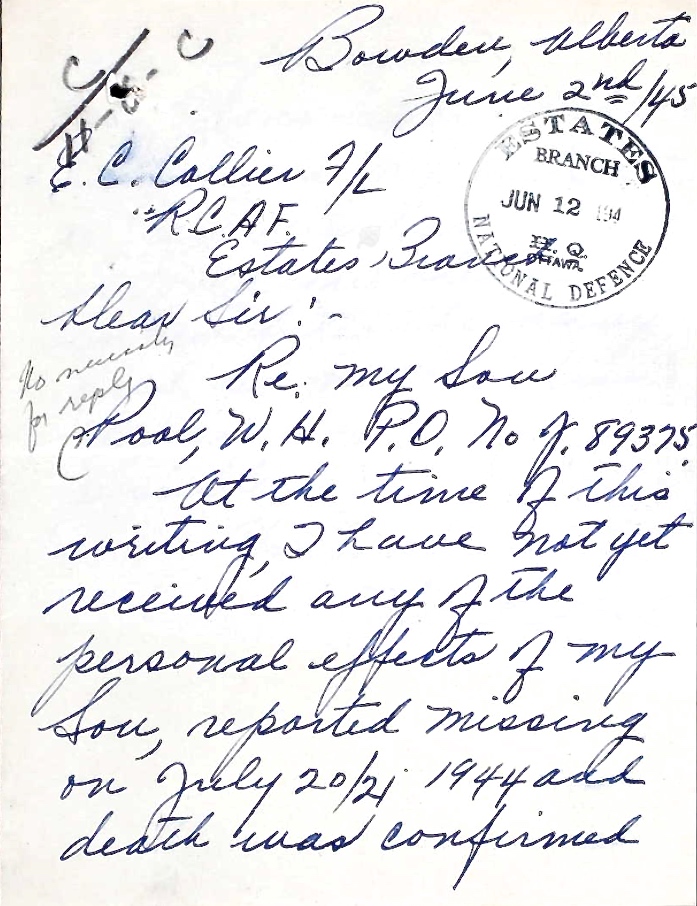 Bowden, Alberta
June 2nd/45
C
H-C-C
ESTATES
BRANCH
JUN 12 194
H.Q.
OTTAWA
NATIONAL DEFENCE
E. C. Collier F/L
R.C.A.F.
Estates Branch
Dear Sir:-
No necessity
for reply
Re. my Son
Pool, W. H. P.O. No J. 89375
At the time of this
writing, I have not yet
received any of the
personal effects of my
Son, reported missing
on July 20/21 1944 and
death was confirmed